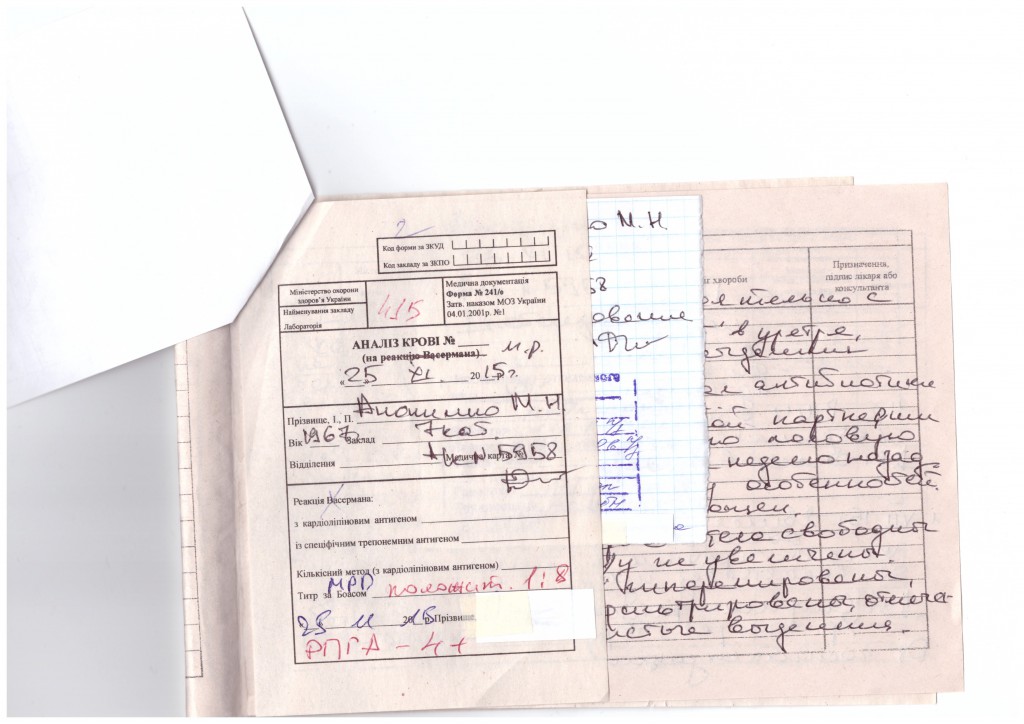 2
Код форми за ЗКУД
Код закладу за ЗКПО
Міністерство охорони
здоров'я України
Найменування закладу
Лабораторія
415
Медична документація
Форма № 241/о
Затв. наказом МОЗ України
04.01.2001р. №1
АНАЛІЗ КРОВІ №
(на реакцію Васермана) м.р.
«25» XI. 2015р г.
Прізвище, І., П. Анонимно М.Н.
Вік 1967 Заклад 7каб.
Відділення Медична карта № 5958
Реакція Васермана:
з кардіоліпіновим антигеном
із специфічним трепонемним антигеном
Кількісний метод (з кардіоліпіновим антигеном)
Титр за Боасом МРП положит. 1:8
25 11 2015 Прізвище
РПГА - 4+
о М.Н.
58
ование
хвороби
Призначення,
підпис лікаря або
консультанта
ятельно с
в уретре,
антибиотики
ой партнерши
половую
неделю назад
особенностей.
тела свободны
не увеличены.
гиперемированы,
выделения.